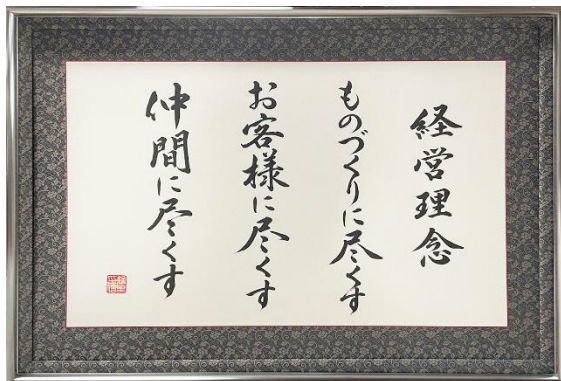 経営理念
ものづくりに尽くす
お客様に尽くす
仲間に尽くす